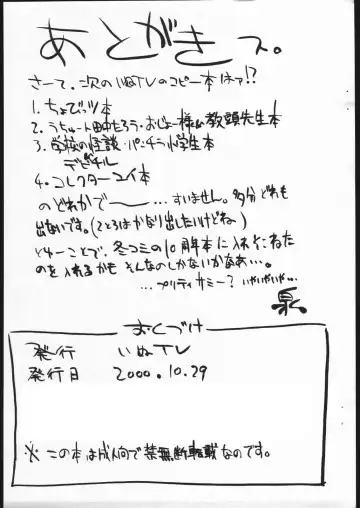 あとがきっス。
さーて、次のいぬTVのコピー本はァ!?
1. ちょびっツ本
2. うちゅー人田中たろう・おじょー様&教頭先生本
3. 学校の怪談・パンチラ小学生本
デビチル
4. コレクターユイ本
のどれかで〜〜…すいません。多分どれも
出ないです。(2と3はかなり出したいけどね)
とゆーことで、冬コミの10周本に入れそこねた
のを入れるかも そんなのしかないかなあ…。
…プリティサミー? いやいやいや…
おくづけ
発行 いぬTV
発行日 2000.10.29
※この本は成人向で禁無断転載なのです。